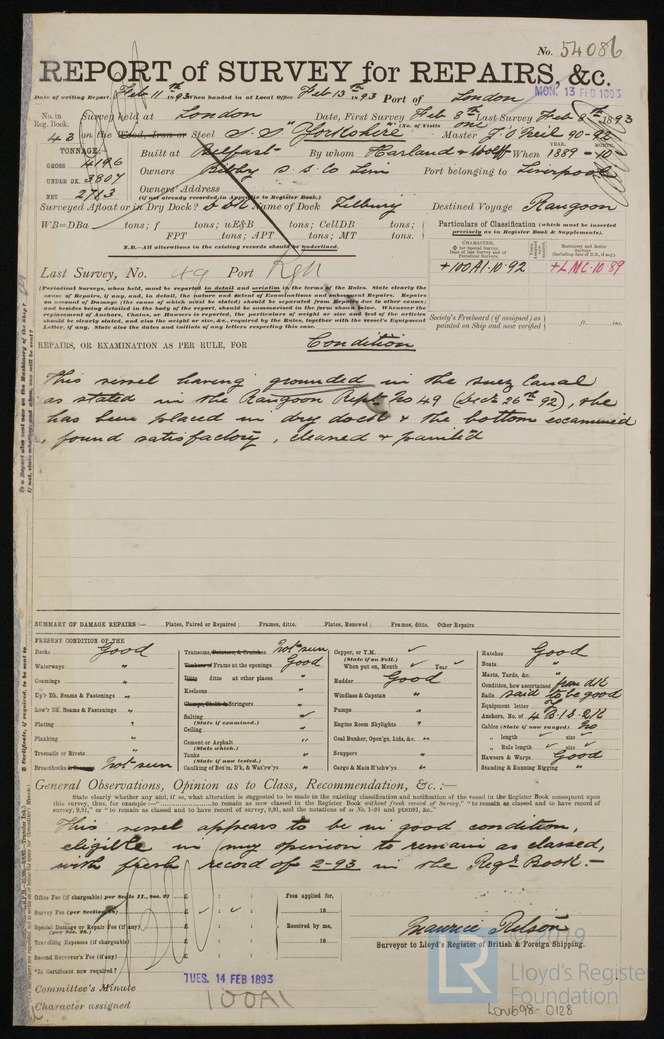 No. 54086
REPORT of SURVEY for REPAIRS, &c.
Date of writing Report Feb 11th 1893 When handed in at Local Office Feb 13th 1893 Port of London
MON. 13 FEB 1893
No. in Reg. Book. Survey held at London Date, First Survey Feb 8th Last Survey Feb 8th 1893
(No. of Visits one)
43 on the Wood, Iron or Steel S.S "Yorkshire" Master J. O'Neil 90-92
TONNAGE: Built at Belfast By whom Harland & Wolff When 1889 - 10
YEAR. MONTH.
GROSS 4196 Owners Bibby S S Co Lim Port belonging to Liverpool
UNDER DK. 3807 Owners' Address
NET 2713 (if not already recorded in Appendix to Register Book.)
Surveyed Afloat or in Dry Dock? D Dk Name of Dock Tilbury Destined Voyage Rangoon
WB=DBa tons; f tons; uE&B tons; CellDB tons;
FPT tons; APT tons; MT tons.
N.B.—All alterations in the existing records should be underlined.
Particulars of Classification (which must be inserted precisely as in Register Book & Supplements).
CHARACTER.
Machinery and Boiler Surveys
+100A1·10·92
+LMC·10·89
Last Survey, No. 49 Port Rgn
(Periodical Surveys, when held, must be reported in detail and seriatim in the terms of the Rules. State clearly the
cause of Repairs, if any, and, in detail, the nature and extent of Examinations and subsequent Repairs. Repairs
on account of Damage (the cause of which must be stated) should be separated from Repairs due to other causes;
and besides being detailed in the body of the report, should be summarized in the form shown below. Whenever the
replacement of Anchors, Chains, or Hawsers is reported, the particulars of weight or size and test of the articles
should be clearly stated, and also the weight or size, &c., required by the Rules, together with the vessel's Equipment
Letter, if any. State also the dates and initials of any letters respecting this case.
Society's Freeboard (if assigned) as painted on Ship and now verified ft. ins.
REPAIRS, OR EXAMINATION AS PER RULE, FOR Condition
This vessel having grounded in the Suez Canal
as stated in the Rangoon Rept. No 49 (Decr 26th 92), she
has been placed in dry dock & the bottom examined
, found satisfactory, cleaned & painted
SUMMARY OF DAMAGE REPAIRS:— Plates, Faired or Repaired; Frames, ditto. Plates, Renewed; Frames, ditto. Other Repairs
PRESENT CONDITION OF THE
Decks Good
Waterways "
Coamings "
Up'r Dk. Beams & Fastenings "
Low'r Dk. Beams & Fastenings "
Plating "
Planking "
Treenails or Rivets "
Breasthooks Not seen
Transoms, Pointers, & Crutches Not seen
Timbers or Frames at the openings Good
Ditto ditto at other places "
Keelsons "
Clamps, Shelfs & Stringers "
Salting
(State if examined.)
Ceiling "
Cement or Asphalt "
(State which.)
Tanks "
(State if now tested.)
Caulking of Bot'm, D'k, & Wat'rw'ys "
Copper, or Y.M.
(State if on Felt.)
When put on, Month Year
Rudder Good
Windlass & Capstan "
Pumps "
Engine Room Skylights
Coal Bunker, Open'gs, Lids, &c. "
Scuppers "
Cargo & Main H'tchw'ys "
Hatches Good
Boats "
Masts, Yards, &c. "
Condition, how ascertained from dk
Sails said to be good
Equipment letter
Anchors, No. of 4 B·1 S·2 K
Cables (State if now ranged) No
" length size
" Rule length size
Hawsers & Warps Good
Standing & Running Rigging "
General Observations, Opinion as to Class, Recommendation, &c. :—
State clearly whether any and, if so, what alteration is suggested to be made in the existing classification and notification of the vessel in the Register Book consequent upon
this survey, thus, for example:—" to remain as now classed in the Register Book without fresh record of Survey," "to remain as classed and to have record of
survey, 9,91," or "to remain as classed and to have record of survey, 9,91, and the notations of
This vessel appears to be in good condition,
eligible in my opinion to remain as classed,
with fresh record of 2-93 in the Regr. Book.—
Office Fee (if chargeable) per Scale II., Sec. 27 £ : : Fees applied for,
Survey Fee (per Section 28) £ : : 18
Special Damage or Repair Fee (if any) £ : : Received by me,
(per Sec. 28.)
Travelling Expenses (if chargeable) £ : : 18
Second Surveyor's Fee (if any) £ : :
*Is Certificate now required?
Maurice Wilson
Surveyor to Lloyd's Register of British & Foreign Shipping.
Committee's Minute TUES. 14 FEB 1893
Character assigned 100A1
LR
© 2019
Lloyd's Register
Foundation
LON698-0128